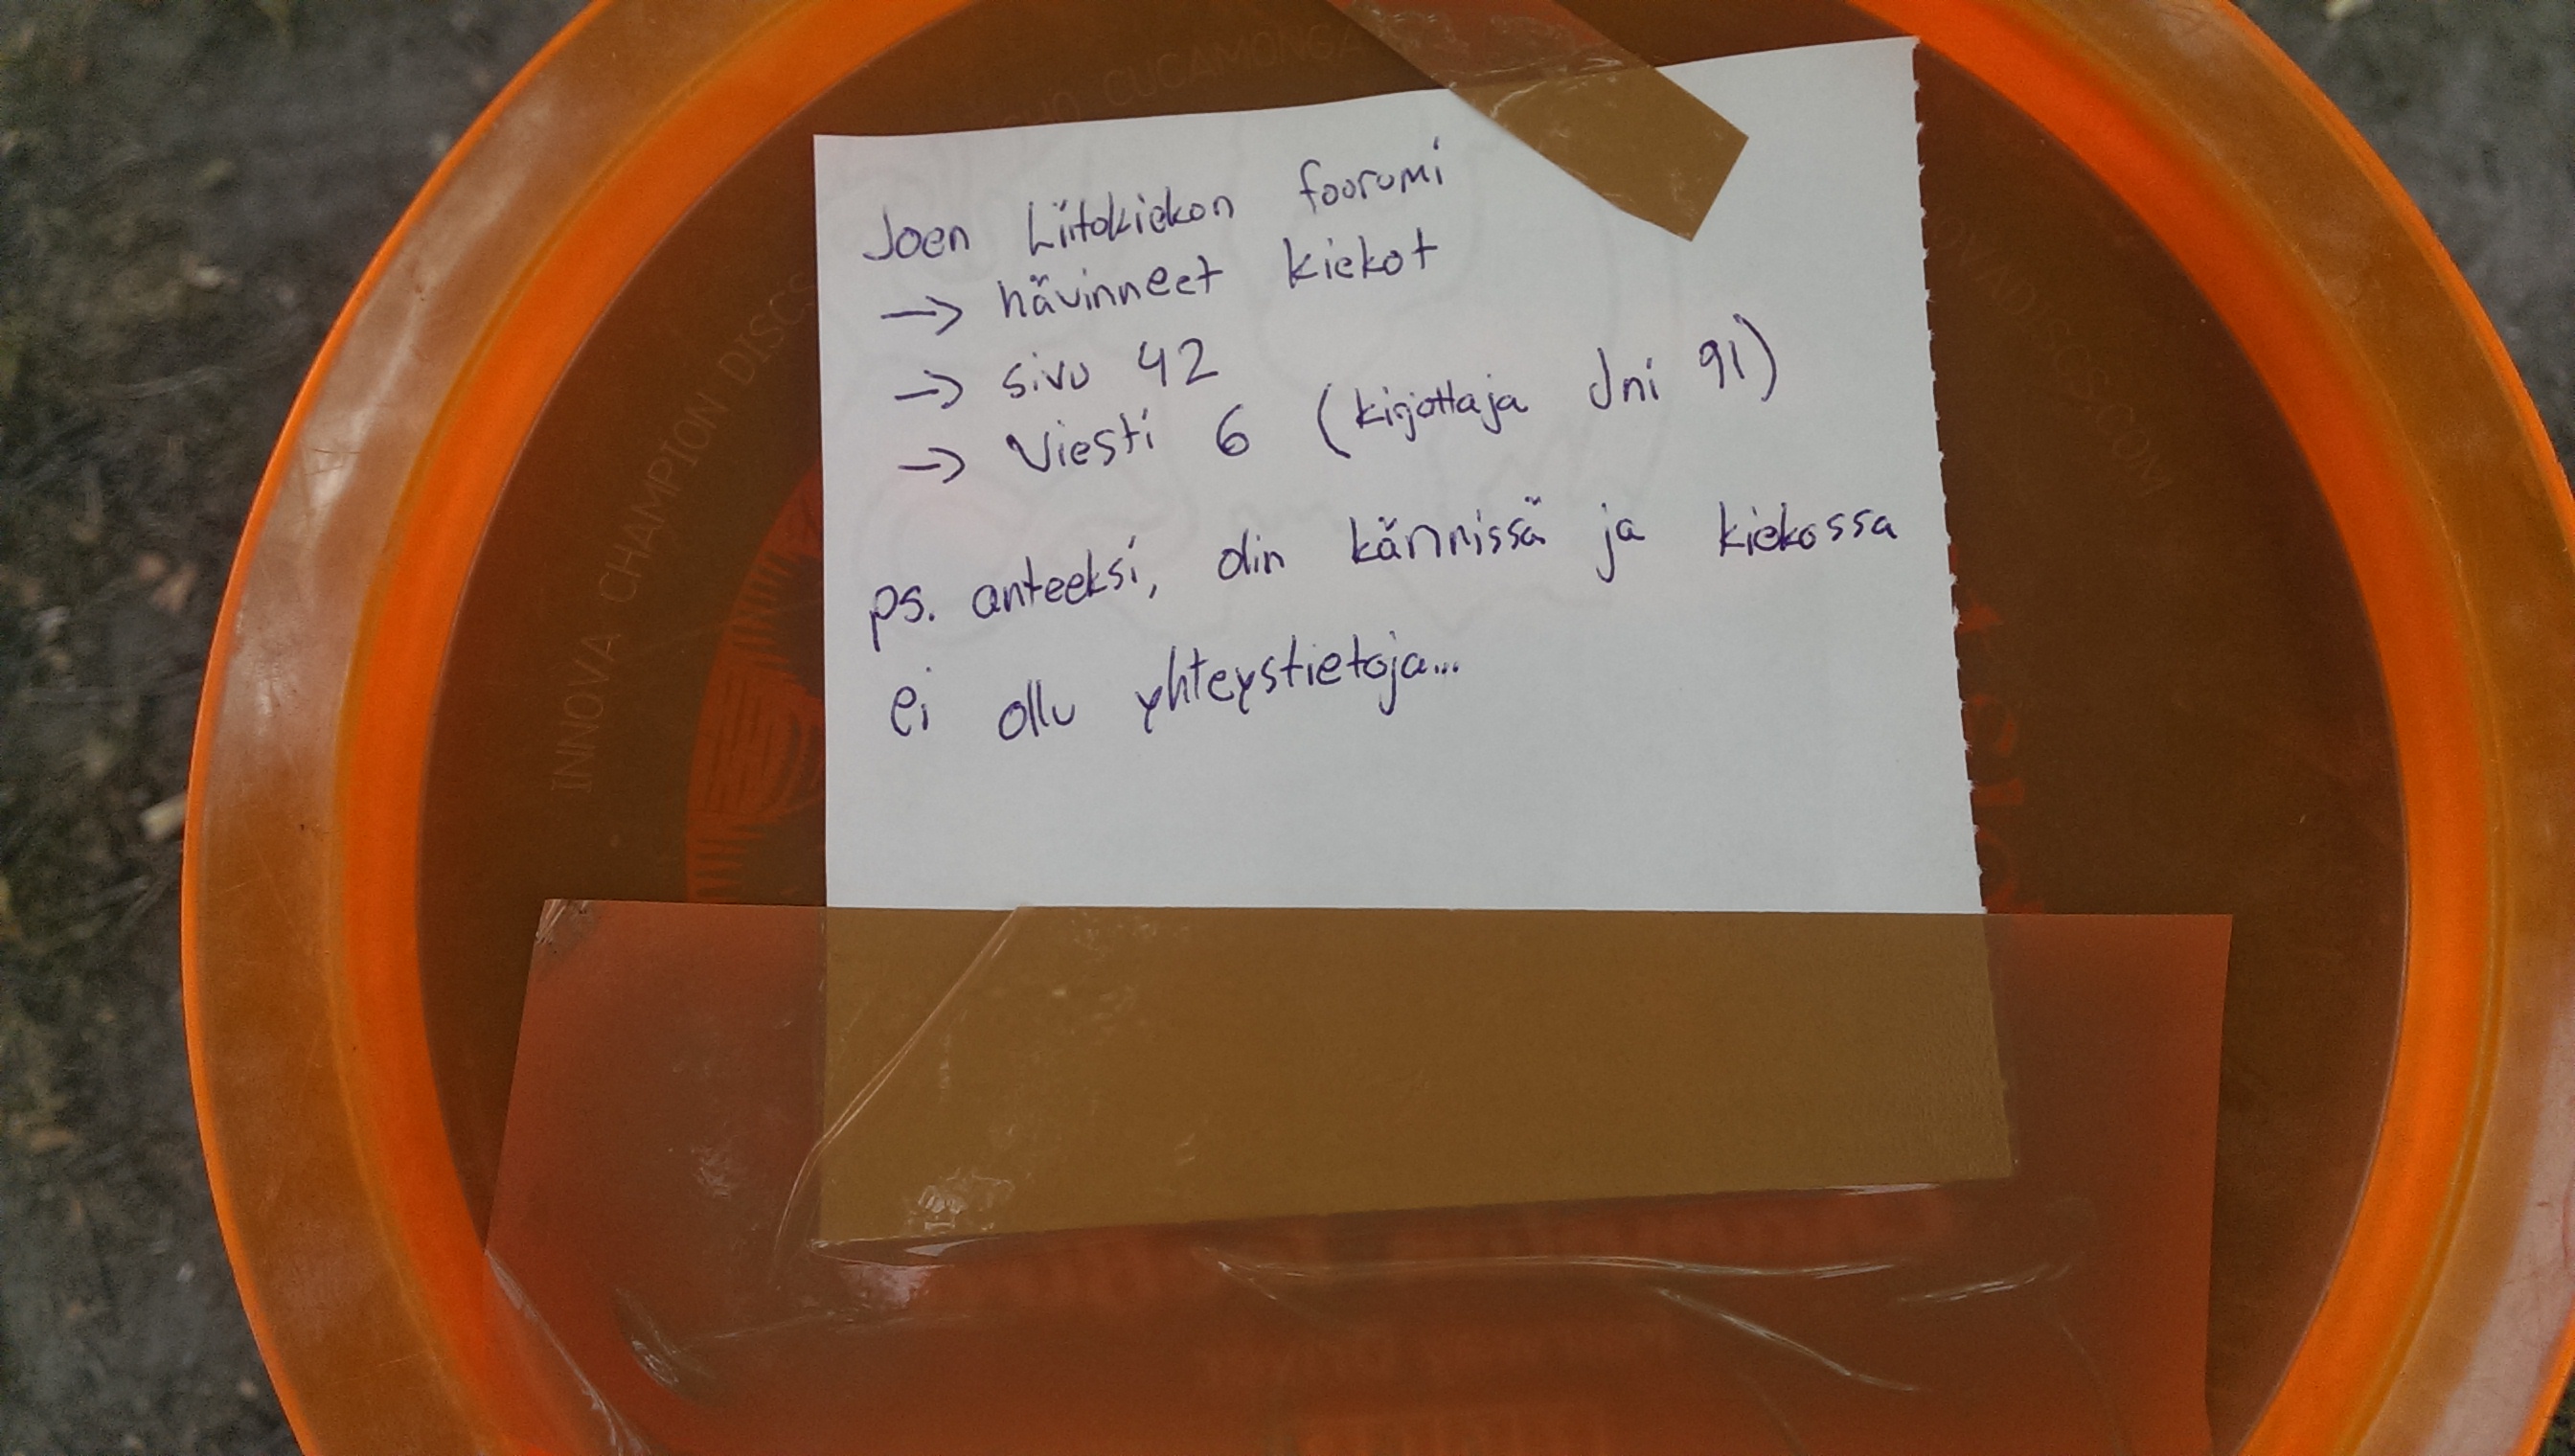 RANCHO CUCAMONGA
INNOVA CHAMPION DISCS
INNOVADISCS.COM
Joen Liitokiekon foorumi
→ hävinneet kiekot
→ sivu 42
→ Viesti 6 (kirjottaja Jni 91)
ps. anteeksi, olin kännissä ja kiekossa
ei ollu yhteystietoja...